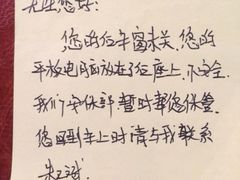 先生,您好:
您的车窗未关,您的
平板电脑放在了位座上,不安全.
我们安保部暂时帮您保管,
您回到车上时请与我联系